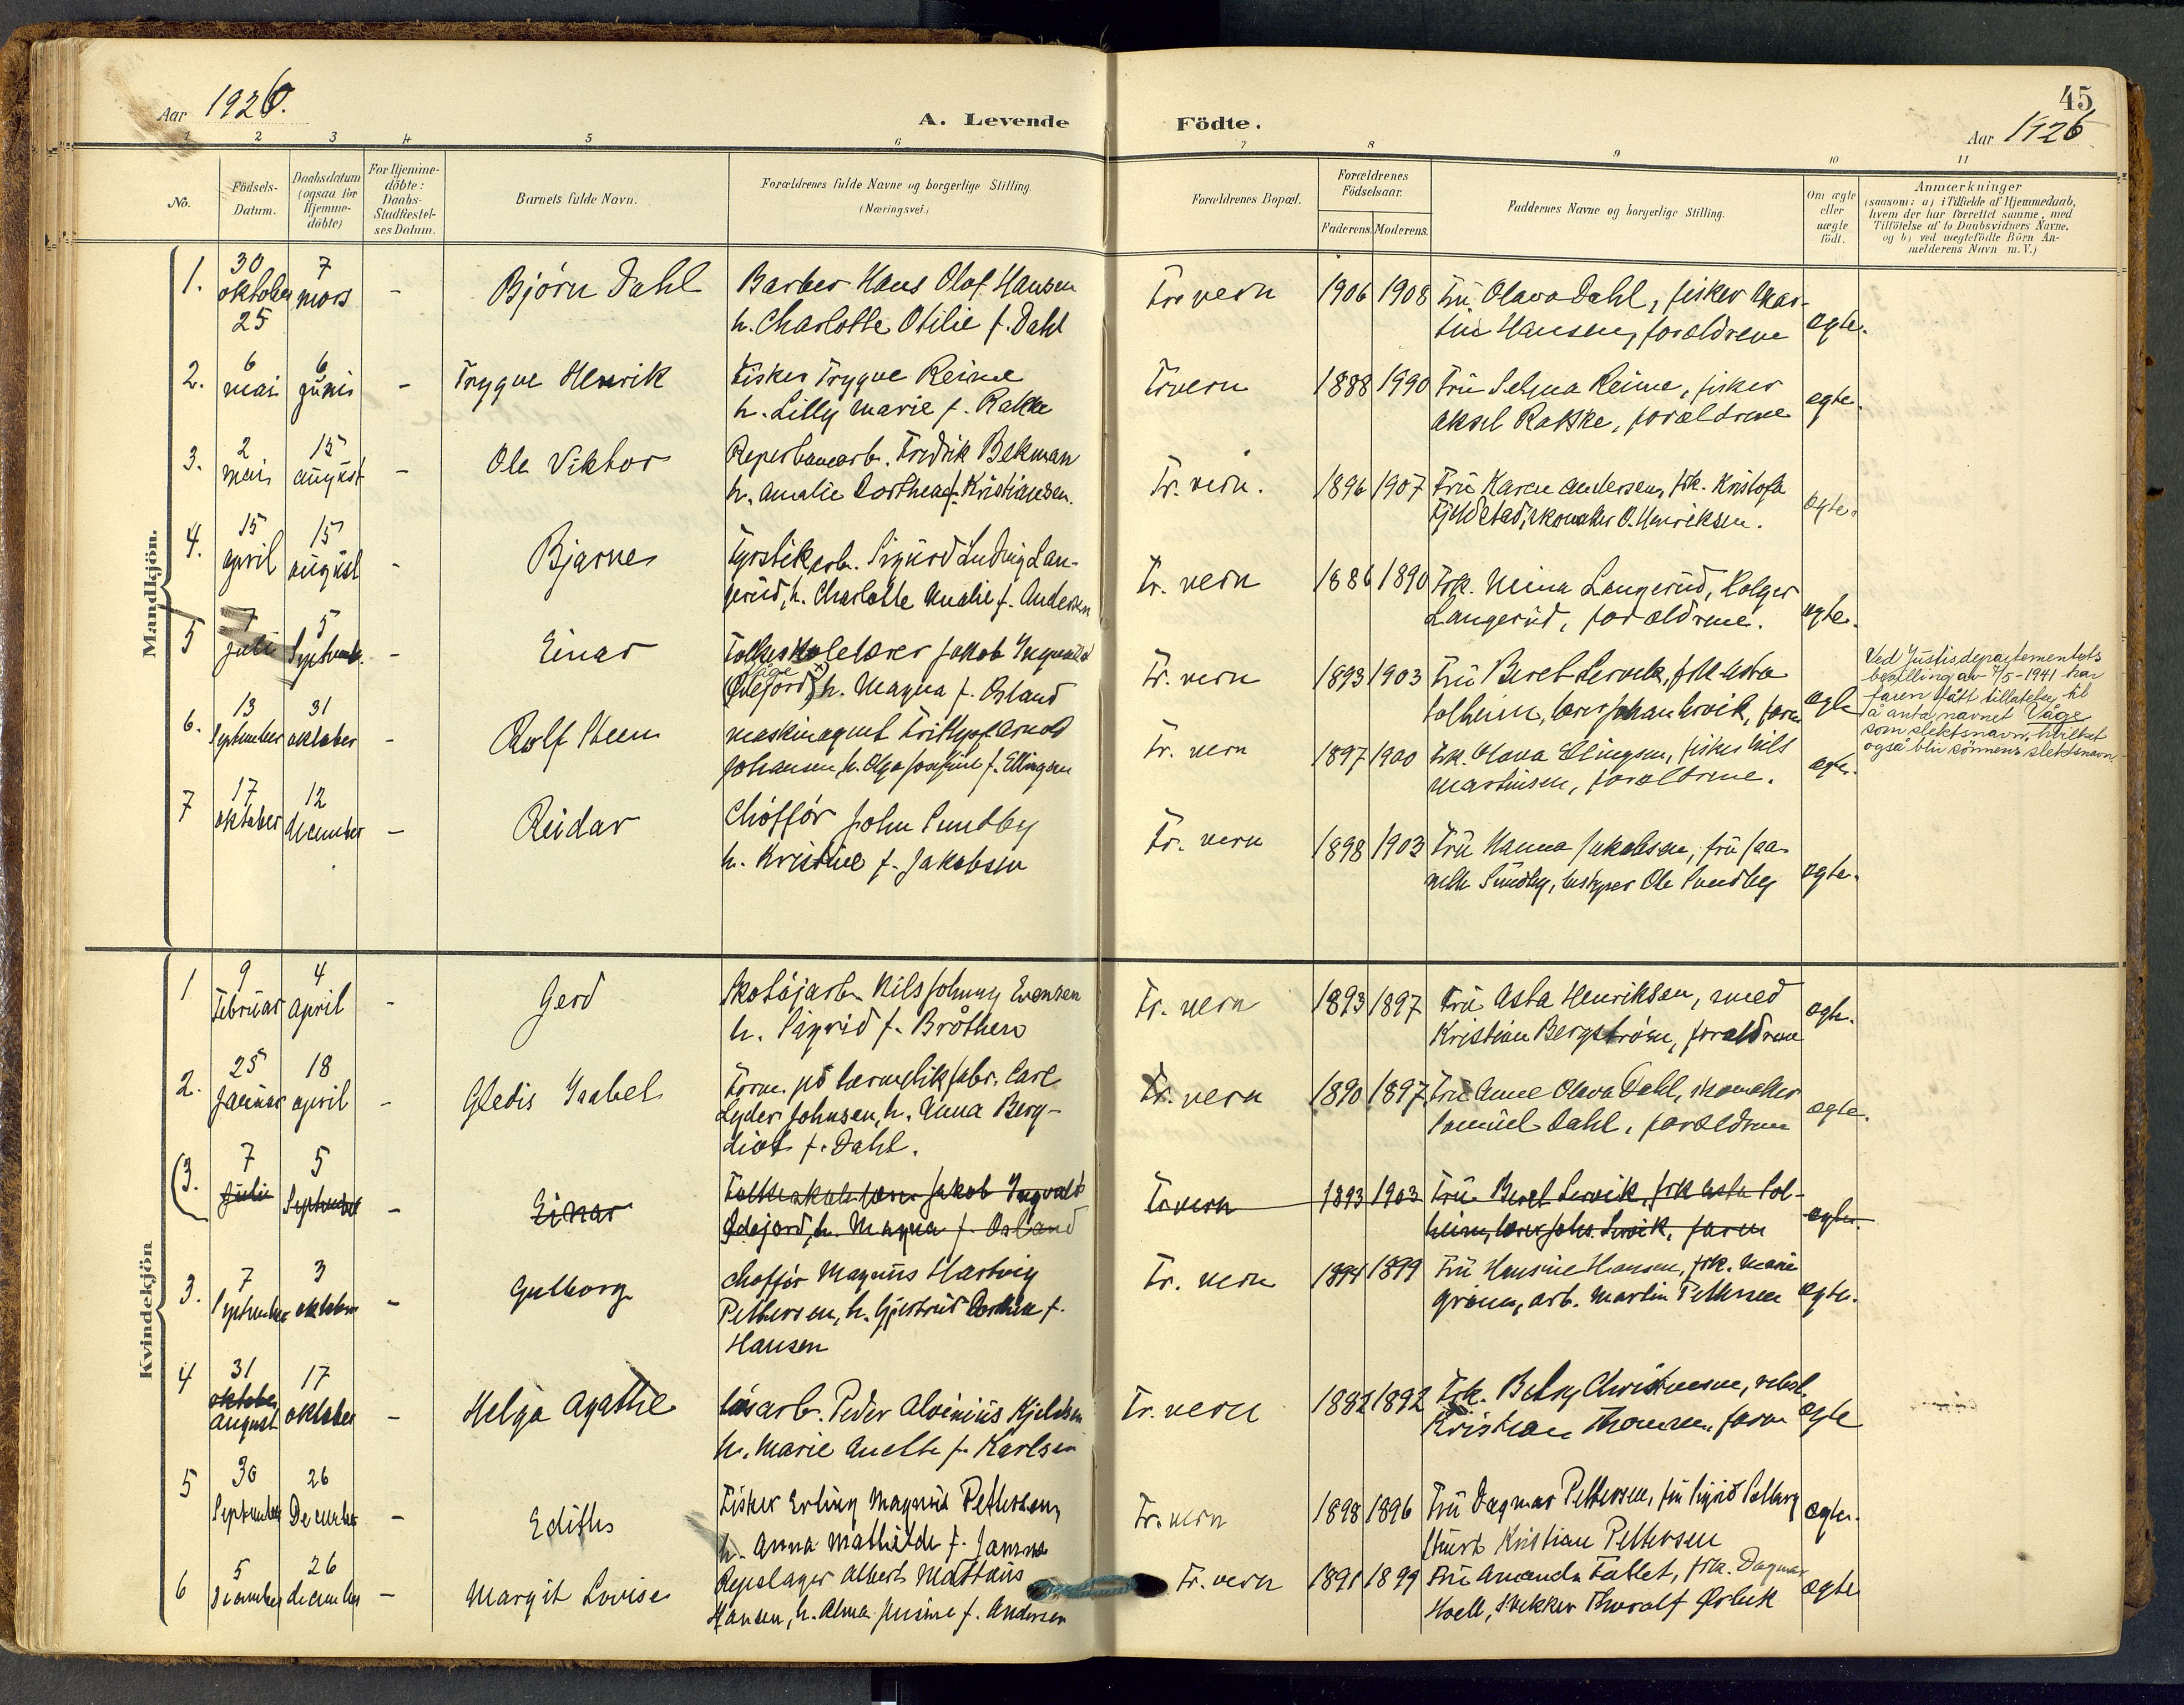 Aar 1926.
A. Levende Födte.
45
Aar 1926
1 2 3 4 5 6 7 8 9 10 11
No.
Födsels-
Datum.
Daabsdatum
(ogsaa for
Hjemme-
döbte)
For Hjemme-
döbte:
Daabs-
Stadfæstel-
ses Datum.
Barnets fulde Navn.
Forældrenes fulde Navne og borgerlige Stilling.
(Næringsvei.)
Forældrenes Bopæl.
Forældrenes
Födselsaar.
Faderens. Moderens.
Faddernes Navne og borgerlige Stilling.
Om ægte
eller
uægte
födt.
Anmærkninger
(saasom: a) i Tilfælde af Hjemmedaab,
hvem der har forrettet samme, med
Tilföielse af to Daabsvidners Navne,
og b) ved uægtefödte Börn An-
melderens Navn m.V.)
Mandkjön.
1. 30 oktober 25
7 mars
-
Bjørn Dahl
Barber Hans Olaf Hansen
h. Charlotte Otilie f. Dahl
Tr. vern
1906 1908
Fru Olava Dahl, fisker Mar-
tin Hansen, forældrene
ægte.
2. 6 mai
6 juni
-
Trygve Henrik
Fisker Trygve Reime
h. Lilly Marie f. Rakke
Tr vern
1888 1990
Fru Selma Reime, fisker
Aksel Rakke, forældrene
ægte.
3. 2 mai
15 august
-
Ole Viktor
Reperbanearb. Fredrik Bekman
h. Amalie Dorthea f. Kristiansen.
Tr. vern.
1896 1907
Fru Karen Andersen, frk. Kristofa
Fjeldstad, skomaker O. Henriksen.
ægte.
4. 15 april
15 august
-
Bjarne
Fyrstikarb. Sigurd Ludvig Lan-
gerud, h. Charlotte Amalie f. Andersen
Tr. vern
1886 1890
Frk. Mina Langerud, Holger
Langerud, forældrene.
ægte.
5 7 juli
5 Septemb.
-
Einar
Folkeskolelærer Jakob Ingvald
(Ødejord) h. Magna f. Osland
Våge x)
Tr. vern
1893 1903
Fru Beret Lervik, frk Asta
Solheim, lærer Johan Lervik, faren
ægte
Ved Justisdepartementets
bevilling av 7/5-1941 har
faren fått tillatelse til
å anta navnet Våge
som slektsnavn, hvilket
også blir sönnens slektsnavn.
6. 13 September
31 oktober
-
Rolf Steen
Maskinagent Frithjof Arnold
Johansen, h. Olga Josefine f. Ellingsen
Tr. vern
1897 1900
Frk. Olava Ellingsen, fisker Nils
Martinsen, forældrene.
ægte.
7 17 oktober
12 december
-
Reidar
Chöffør John Sundby
h. Kristine f. Jakobsen
Tr. vern
1898 1903
Fru Hanna Jakobsen, fru Jaa-
nette Sundby, Ole Sundby
ægte.
Kvindekjön
1 9 Februar
4 april
-
Gerd
Skotøjarb. Nils Johnny Evensen
h. Sigrid f. Bråthen
Tr. vern
1893 1897
Fru Asta Henriksen, smed
Kristian Bergstrøm, forældrene
ægte.
2. 25 januar
18 april
-
Gledis Isabel
Form. på Carl
Lyder Johnsen, h. Anna Berg-
liot f. Dahl.
Tr. vern
1890 1897
Fru Anne Olava Dahl, skomaker
Samuel Dahl, forældrene
ægte.
(3. 7 Juli
5 September
-
Einar
Folkeskolelærer Jakob Ingvald
Ødejord, h. Magna f. Osland
Tr vern
1893 1903
Fru Beret Lervik, frk Asta Sol-
heim, lærer Johs. Lervik, faren
ægte.
3. 7 September
3 oktober
-
Gulborg
Chaffør Magnus Hartvig
Pettersen, h. Gjertrud Dorthea f.
Hansen
Tr. vern
1894 1899
Fru Hansine Hansen, frk. Marie
Grønn, arb. Martin Pettersen
ægte.
4 31 oktober august
17 oktober
-
Helga Agathe
arb. Peder Alvinius Kjeldsen
h. Marie Anette f. Karlsen
Tr. vern
1882 1892
Frk. Betsy Christensen,
Kristian Thomsen, faren
ægte
5 30 September
26 December
-
Edith
Fisker Erling Magnus Pettersen,
h. Anna Mathilde f.
Tr. vern
1898 1896
Fru Dagmar Pettersen, fru Sigrid Solberg
Kristian Pettersen
ægte.
6 5 December
26 december
-
Margit Lovise
Repslager Albert Matheus
Hansen, h. Alma Jusine f. Andersen
Tr. vern
1891 1899
Fru Amanda Fallet, frk. Dagmar
Hoell, Thoralf Ørbek
ægte